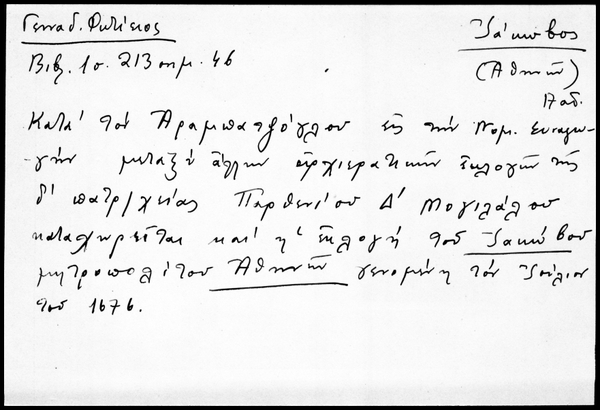 Γενναδ. Φωτίειος
Ἰάκωβος
Βιβ. 1 σ. 213 σημ. 46
(Ἀθηνῶν)
17 αἰ.
Κατά τόν Ἀραμπατζόγλου εἰς τήν Νομ. Συναγω-
-γήν μεταξύ ἄλλων ἀρχιερατικῶν ἐκλογῶν τῆς
δ' πατρ/χείας Παρθενίου Δ' Μογιλάλου
καταχωρεῖται καί ἡ ἐκλογή τοῦ Ἰακώβου
μητροπολίτου Ἀθηνῶν γενομένη τόν Ἰούλιον
τοῦ 1676.